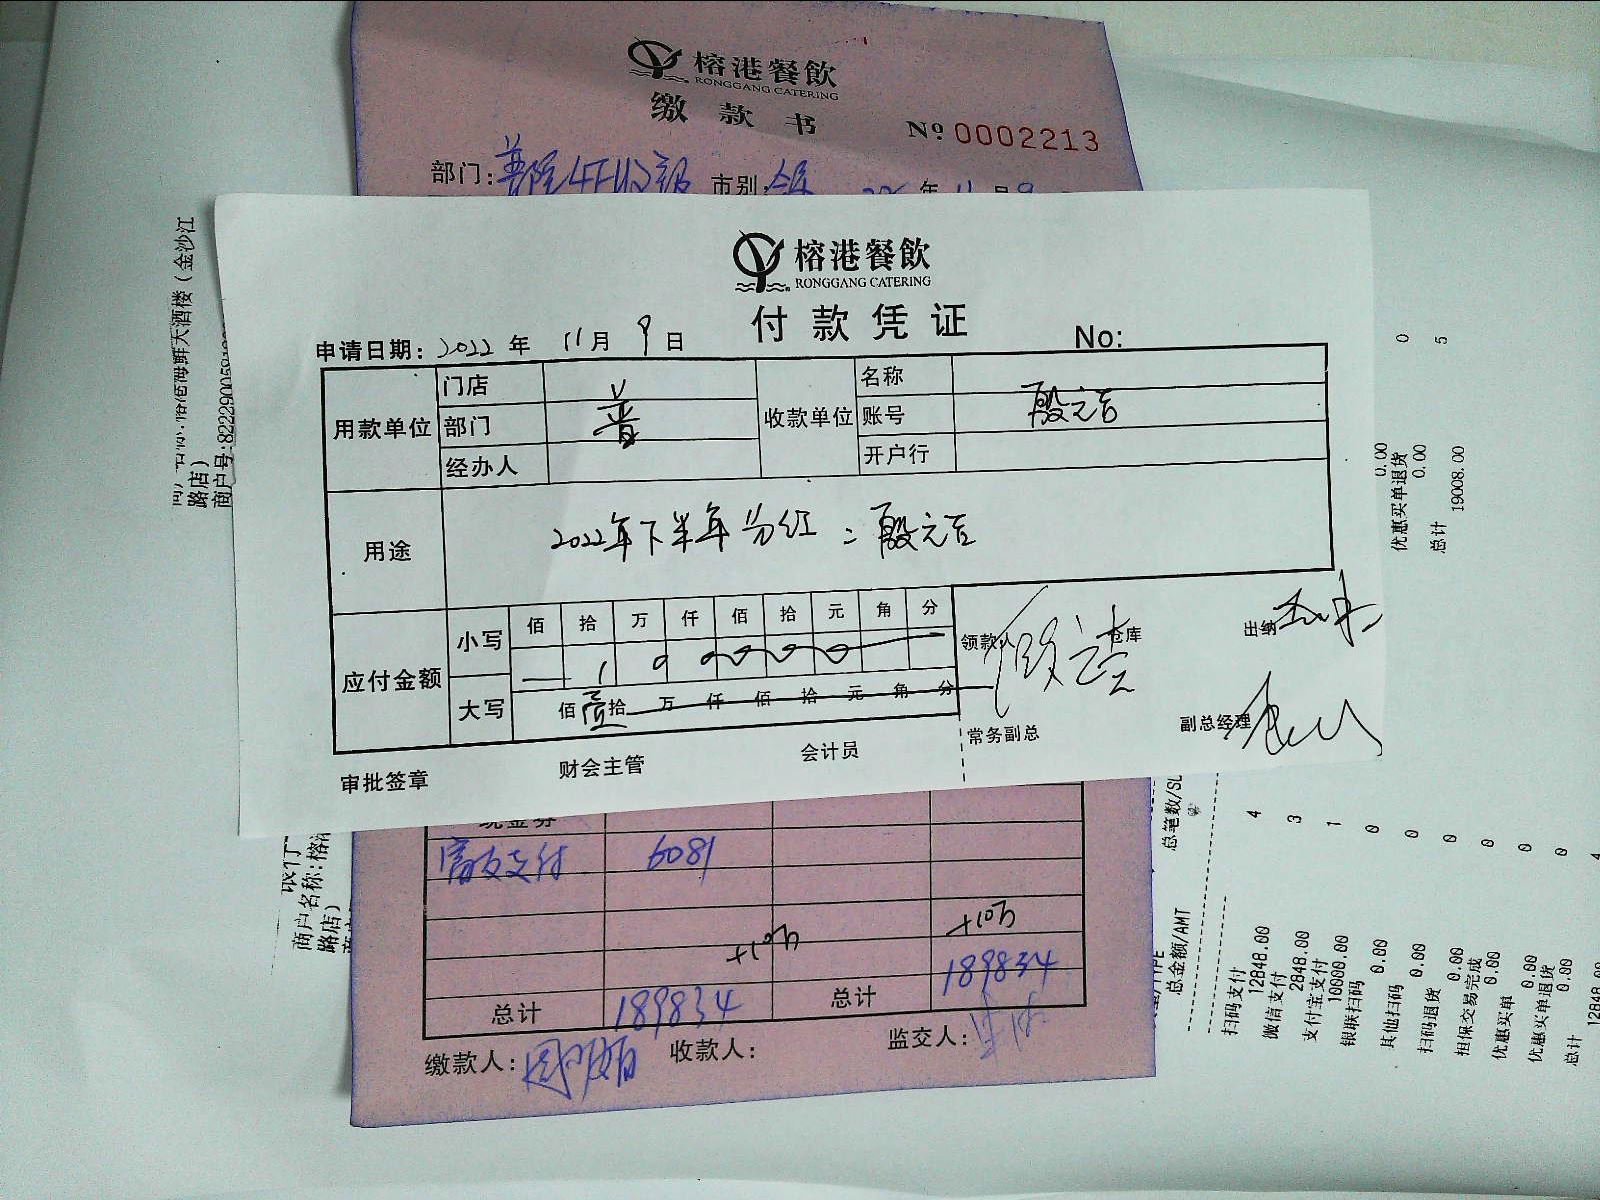 榕港餐飲
RONGGANG CATERING
缴款书
№ 0002213
部门: 市别: 年 11 月 9
榕港餐飲
RONGGANG CATERING
付款凭证
申请日期: 2022 年 11 月 9 日 No:
用款单位 门店 普 收款单位 名称
部门 账号 殷元吉
经办人 开户行
用途 2022年下半年分红: 殷元吉
应付金额 小写 佰 拾 万 仟 佰 拾 元 角 分
1 0 0 0 0 0
大写 佰 壹 拾 万 仟 佰 拾 元 角 分
领款人 殷元吉 仓库 出纳
常务副总 副总经理
审批签章 财会主管 会计员
现金券
6081
+10万 +10万
189834
总计 189834 总计
缴款人: 收款人: 监交人:
海鲜大酒楼(金沙江
路店)
商户号:82229005812
商户名称:榕港
路店)
0
5
0.00
优惠买单退货
0.00
总计
19008.00
总笔数/SU
4
3
1
0
0
0
0
0
0
4
总金额/AMT
扫码支付
12848.00
微信支付
2848.00
支付宝支付
10000.00
银联扫码
0.00
其他扫码
0.00
扫码退货
0.00
担保交易完成
0.00
优惠买单
0.00
优惠买单退货
0.00
总计
12848.00